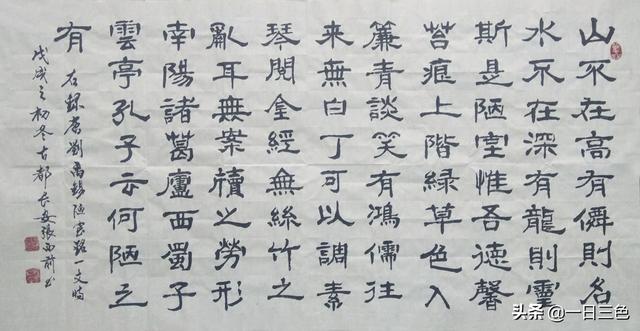 山不在高有僊則名
水不在深有龍則靈
斯是陋室惟吾德馨
苔痕上階緑草色入
簾青談笑有鴻儒往
来無白丁可以調素
琴閲金經無絲竹之
亂耳無案牘之勞形
南陽諸葛廬西蜀子
雲亭孔子云何陋之
有
右録唐劉禹錫陋室銘一文
戊戌之初冬古都長安張西前書
头条 @一日三色